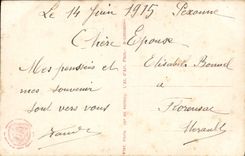 Le 14 Juin 1915 Pezenne
Chère Epouse
Mes pensées et
mes souvenir
sont vers vous
Elisabeth Bonnel
à
Florensac
Herault